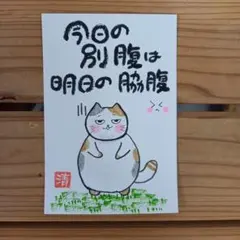 今日の
別腹は
明日の脇腹
清